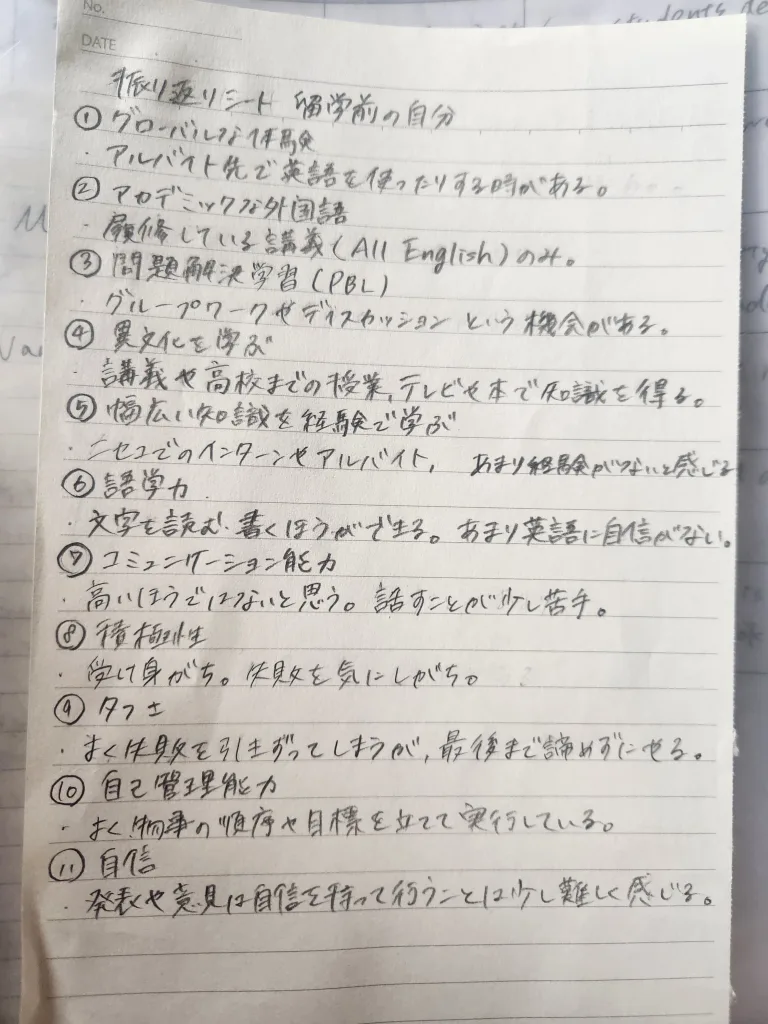 No.
DATE
振り返りシート 留学前の自分
① グローバルな体験
・アルバイト先で英語を使ったりする時がある。
② アカデミックな外国語
・履修している講義(All English)のみ。
③ 問題解決学習(PBL)
・グループワークやディスカッションという機会がある。
④ 異文化を学ぶ
・講義や高校までの授業、テレビや本で知識を得る。
⑤ 幅広い知識を経験で学ぶ
・ニセコでのインターンやアルバイト, あまり経験がないと感じる
⑥ 語学力
・文字を読む・書くほうができる。あまり英語に自信がない。
⑦ コミュニケーション能力
・高いほうではないと思う。話すことが少し苦手。
⑧ 積極性
・受け身がち。失敗を気にしがち。
⑨ タフさ
・よく失敗を引きずってしまうが、最後まで諦めずにやる。
⑩ 自己管理能力
・よく物事の順序や目標を立てて実行している。
⑪ 自信
・発表や意見は自信を持って行うことは少し難しく感じる。